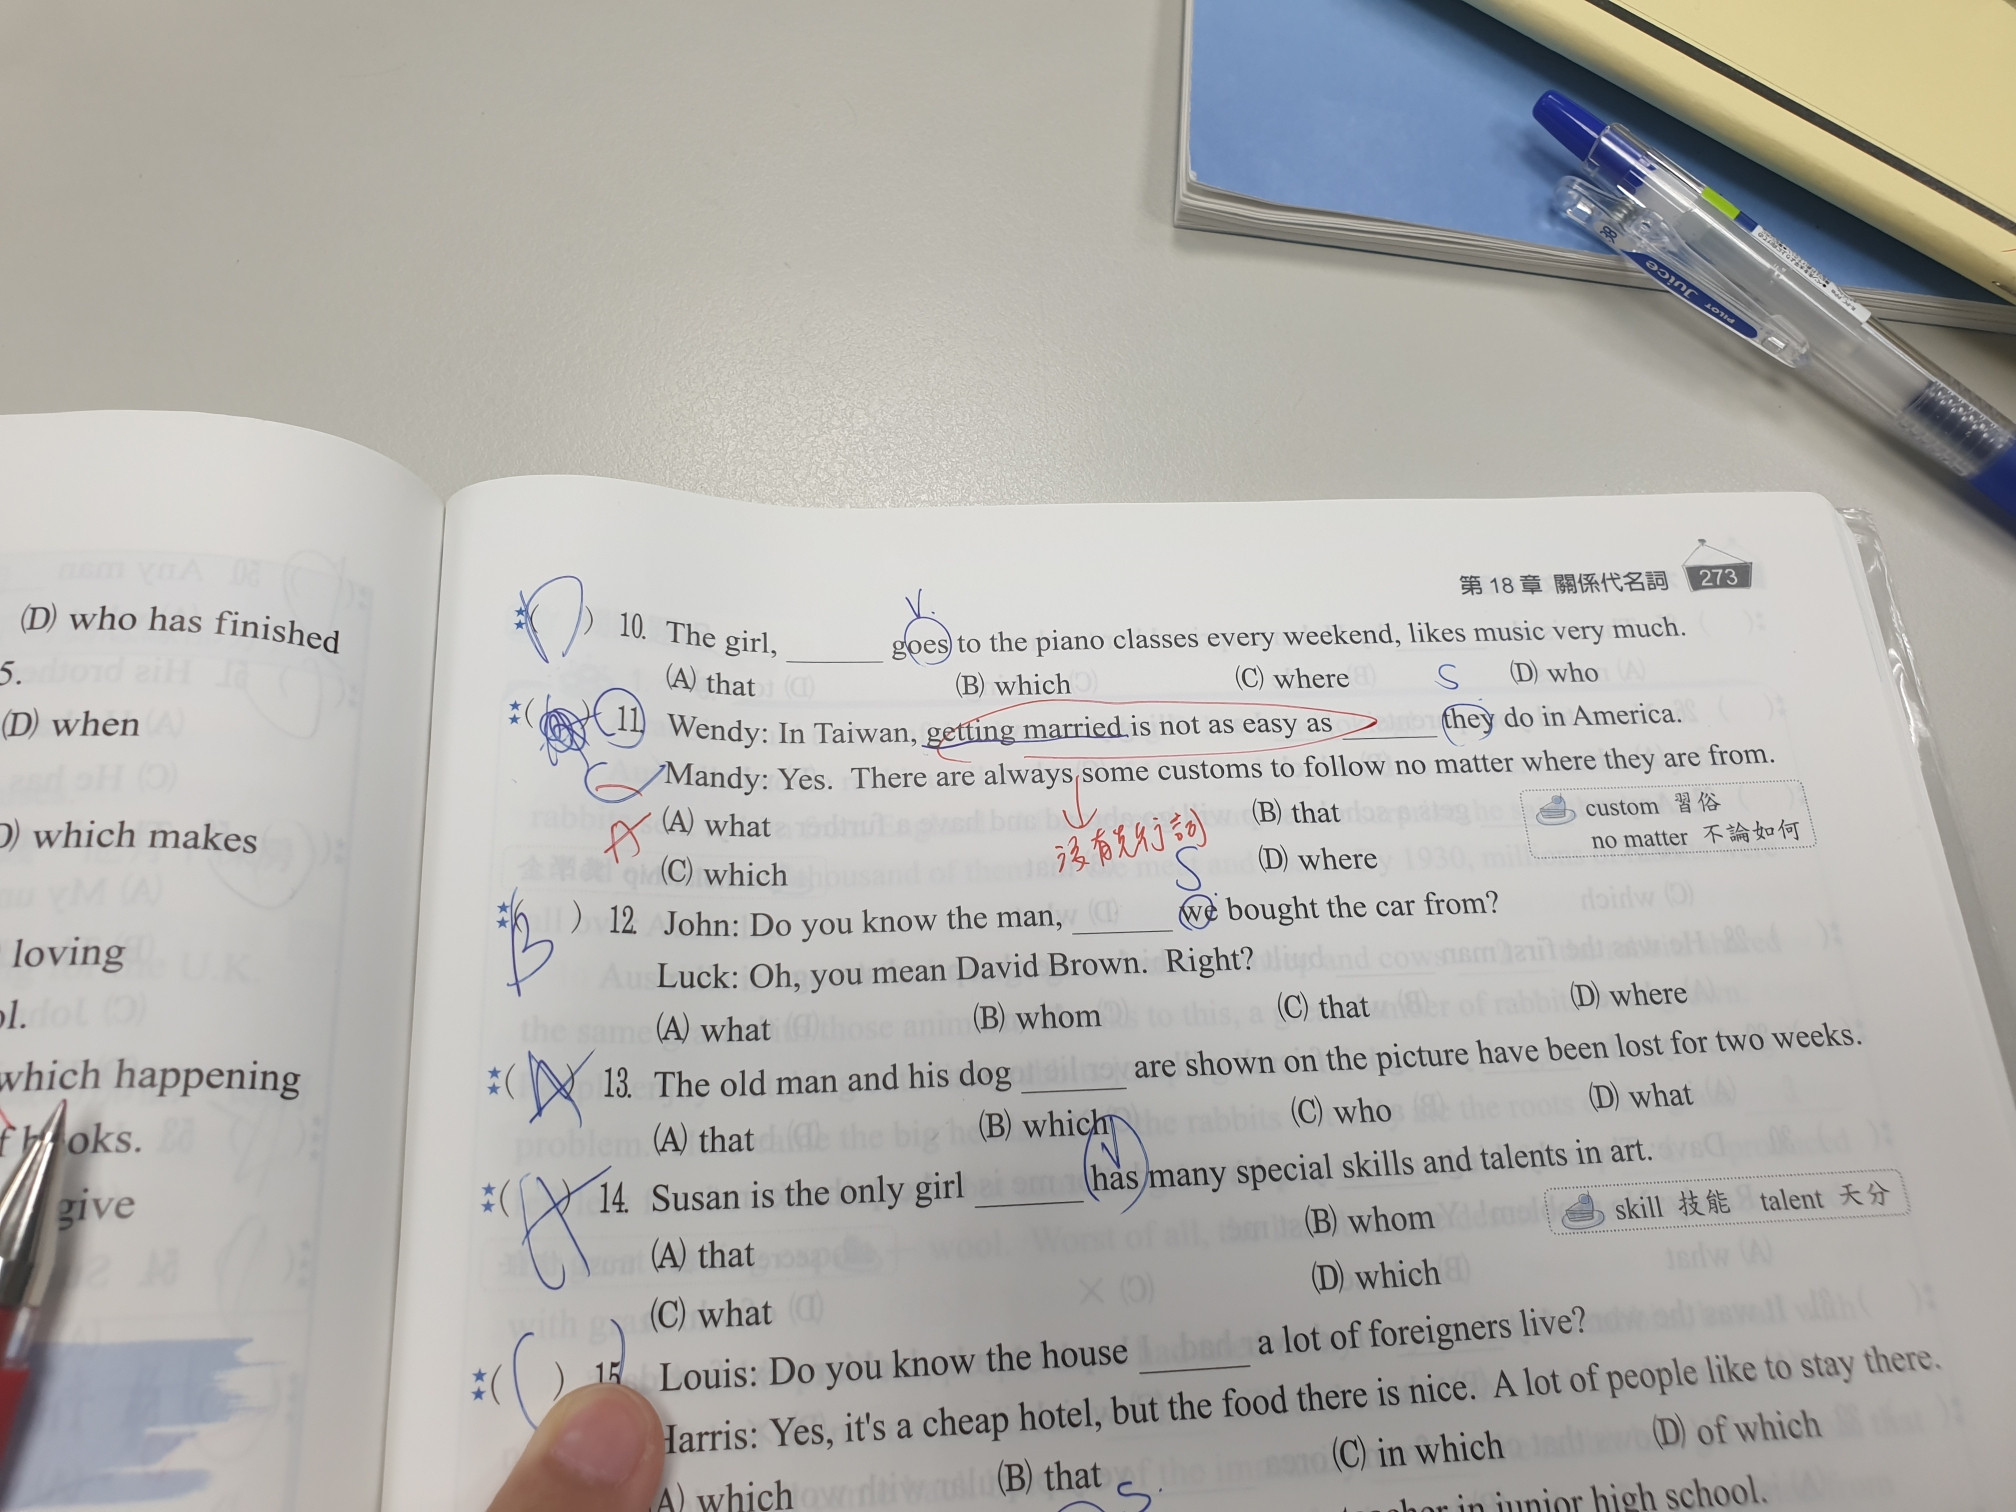 (D) who has finished
5.
(D) when
which makes
loving
ol.
which happening
give
第 18 章 關係代名詞 273
V.
( D ) 10. The girl, ______ goes to the piano classes every weekend, likes music very much.
(A) that (B) which (C) where (D) who
S
( ) 11. Wendy: In Taiwan, getting married is not as easy as ______ they do in America.
C Mandy: Yes. There are always some customs to follow no matter where they are from.
A (A) what (B) that
(C) which (D) where
custom 習俗
no matter 不論如何
沒有先行詞
S
( B ) 12. John: Do you know the man, ______ we bought the car from?
Luck: Oh, you mean David Brown. Right?
(A) what (B) whom (C) that (D) where
( A ) 13. The old man and his dog ______ are shown on the picture have been lost for two weeks.
(A) that (B) which (C) who (D) what
V
( A ) 14. Susan is the only girl ______ has many special skills and talents in art.
(A) that (B) whom
(C) what (D) which
skill 技能 talent 天分
( ) 15. Louis: Do you know the house ______ a lot of foreigners live?
Harris: Yes, it's a cheap hotel, but the food there is nice. A lot of people like to stay there.
(A) which (B) that (C) in which (D) of which
S.
in junior high school.
Juice
PILOT